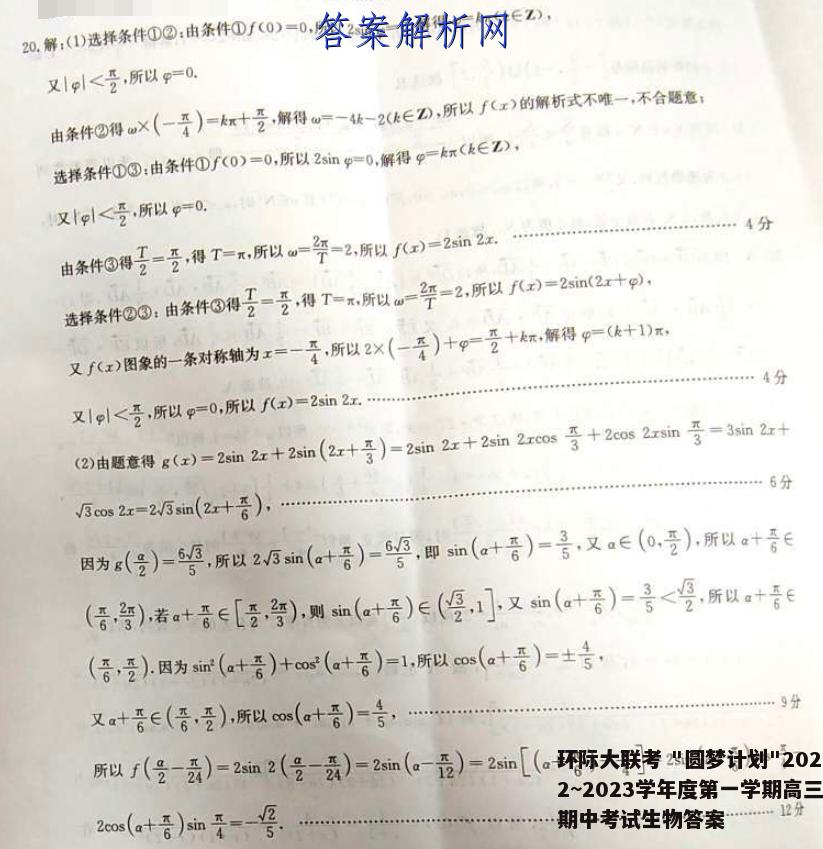 答案解析网
20.解:(1)选择条件①②:由条件①f(0)=0,
又|φ|<π/2,所以φ=0.
由条件②得ω×(-π/4)=kπ+π/2,解得ω=-4k-2(k∈Z),所以f(x)的解析式不唯一,不合题意;
选择条件①③:由条件①f(0)=0,所以2sin φ=0,解得φ=kπ(k∈Z),
又|φ|<π/2,所以φ=0.
由条件③得T/2=π/2,得T=π,所以ω=2π/T=2,所以f(x)=2sin 2x. 4分
选择条件②③:由条件③得T/2=π/2,得T=π,所以ω=2π/T=2,所以f(x)=2sin(2x+φ),
又f(x)图象的一条对称轴为x=-π/4,所以2×(-π/4)+φ=π/2+kπ,解得φ=(k+1)π,
又|φ|<π/2,所以φ=0,所以f(x)=2sin 2x. 4分
(2)由题意得g(x)=2sin 2x+2sin(2x+π/3)=2sin 2x+2sin 2xcos π/3+2cos 2xsin π/3=3sin 2x+
√3cos 2x=2√3sin(2x+π/6), 6分
因为g(α/2)=6√3/5,所以2√3sin(α+π/6)=6√3/5,即sin(α+π/6)=3/5,又α∈(0,π/2),所以α+π/6∈
(π/6,2π/3),若α+π/6∈[π/2,2π/3),则sin(α+π/6)∈(√3/2,1],又sin(α+π/6)=3/5<√3/2,所以α+π/6∈
(π/6,π/2).因为sin²(α+π/6)+cos²(α+π/6)=1,所以cos(α+π/6)=±4/5,
又α+π/6∈(π/6,π/2),所以cos(α+π/6)=4/5, 9分
所以f(α/2-π/24)=2sin 2(α/2-π/24)=2sin(α-π/12)=2sin[(α
2cos(α+π/6)sin π/4=-√2/5. 12分
环际大联考 "圆梦计划"202
2~2023学年度第一学期高三
期中考试生物答案